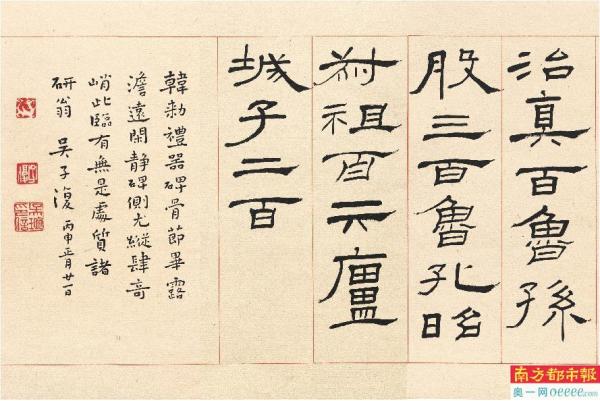 治真百魯孫
殷三百魯孔昭
叔祖百亓廬
城子二百
韓勑禮器碑骨節畢露
澹遠閑靜碑側尤縱肆奇
峭此臨有無是處質諸
研翁 吳子復 丙申正月廿一
南方都市報
奥一网oeeee.com